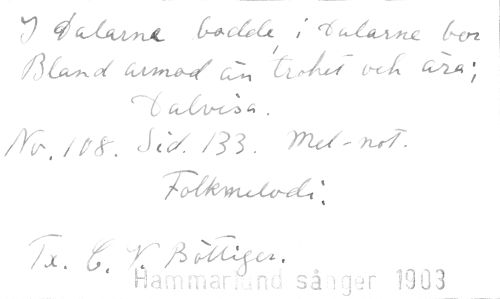 I Dalarne bodde, i Dalarne bor
Bland armod än trohet och ära;
Dalvisa.
No. 108. Sid. 133. Mel-not.
Folkmelodi.
Tx. C. V. Böttiger.
Hammarlund sånger 1903